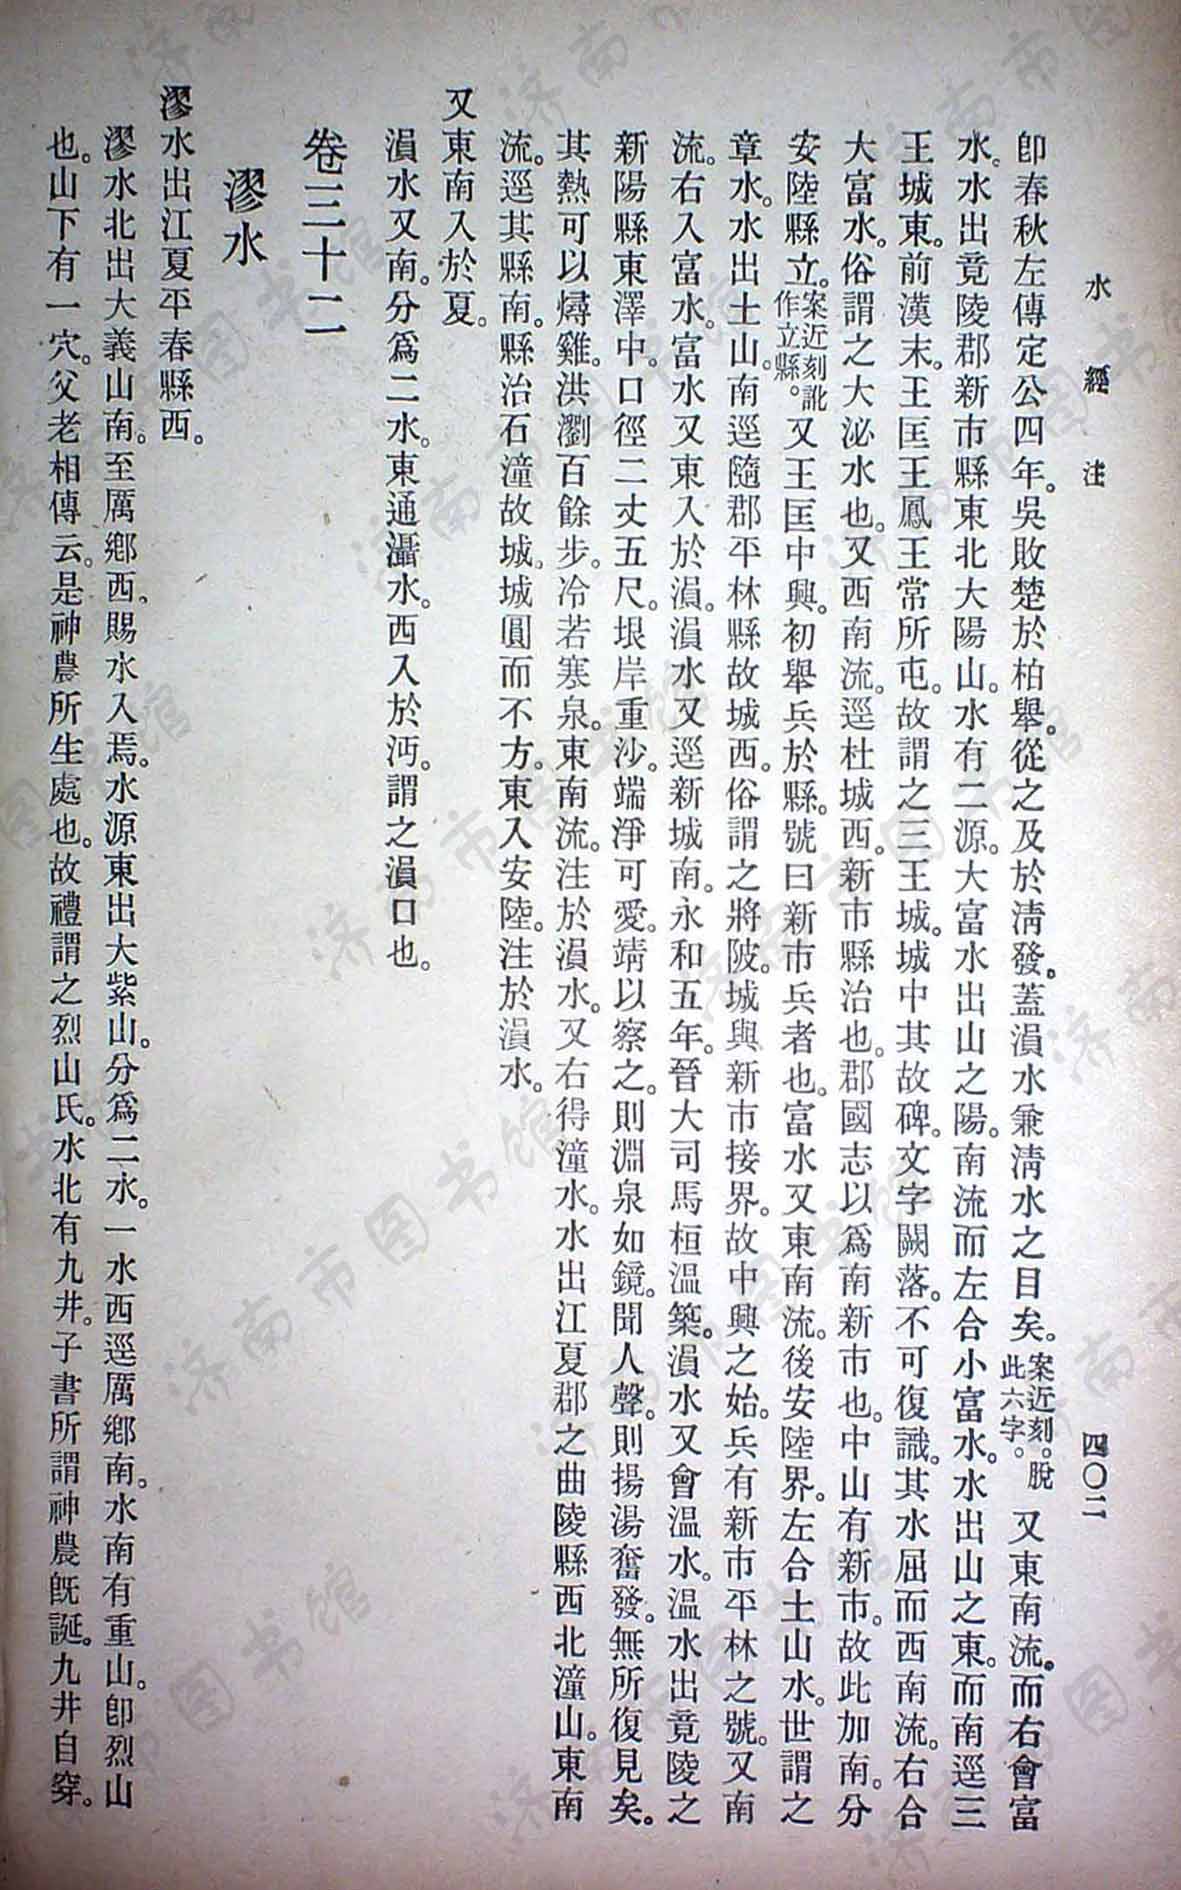 水經注
四〇二
卽春秋左傳定公四年。吳敗楚於柏舉。從之及於淸發。蓋溳水兼淸水之目矣。案近刻。脫此六字。又東南流。而右會富
水。水出竟陵郡新市縣東北大陽山。水有二源。大富水出山之陽。南流而左合小富水。水出山之東。而南逕三
王城東。前漢末。王匡王鳳王常所屯。故謂之三王城。城中其故碑。文字闕落。不可復識。其水屈而西南流。右合
大富水。俗謂之大泌水也。又西南流。逕杜城西。新市縣治也。郡國志以爲南新市也。中山有新市。故此加南。分
安陸縣立。案近刻訛作立縣。又王匡中興。初舉兵於縣。號曰新市兵者也。富水又東南流。後安陸界。左合土山水。世謂之
章水。水出土山。南逕隨郡平林縣故城西。俗謂之將陂。城與新市接界。故中興之始。兵有新市平林之號。又南
流。右入富水。富水又東入於溳。溳水又逕新城南。永和五年。晉大司馬桓溫築。溳水又會溫水。溫水出竟陵之
新陽縣東澤中。口徑二丈五尺。垠岸重沙。端淨可愛。靖以察之。則淵泉如鏡。聞人聲。則揚湯奮發。無所復見矣。
其熱可以燖雞。洪瀏百餘步。冷若寒泉。東南流。注於溳水。又右得潼水。水出江夏郡之曲陵縣西北潼山。東南
流。逕其縣南。縣治石潼故城。城圓而不方。東入安陸。注於溳水。
又東南入於夏。
溳水又南。分爲二水。東通灄水。西入於沔。謂之溳口也。
卷三十二
漻水
漻水出江夏平春縣西。
漻水北出大義山南。至厲鄉西。賜水入焉。水源東出大紫山。分爲二水。一水西逕厲鄉南。水南有重山。卽烈山
也。山下有一穴。父老相傳云。是神農所生處也。故禮謂之烈山氏。水北有九井。子書所謂神農旣誕。九井自穿。